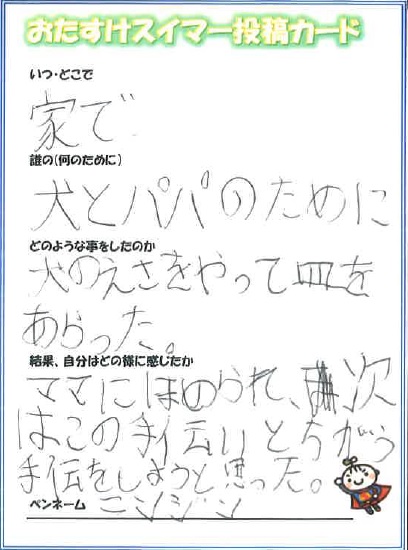 おたすけスイマー投稿カード
いつ・どこで
家で
誰の(何のために)
犬とパパのために
どのような事をしたのか
犬のえさをやって皿を
あらった。
結果、自分はどの様に感じたか
ママにほめられ、次
はこの手伝いとちがう
手伝をしようと思った。
ペンネーム ニンジン